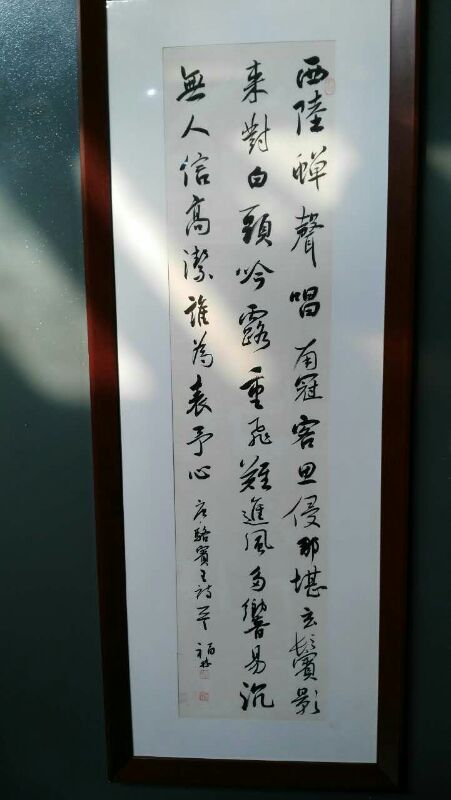 西陸蟬聲唱南冠客思侵那堪玄鬢影
来對白頭吟露重飛難進風多響易沉
無人信高潔誰為表予心 唐駱賓王詩一首